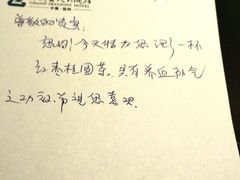 GRAND SKYLIGHT HOTEL
尊敬的贵宾:
您好!今天特为您沏了一杯
红枣桂圆茶,具有养血补气
之功效,希望您喜欢.